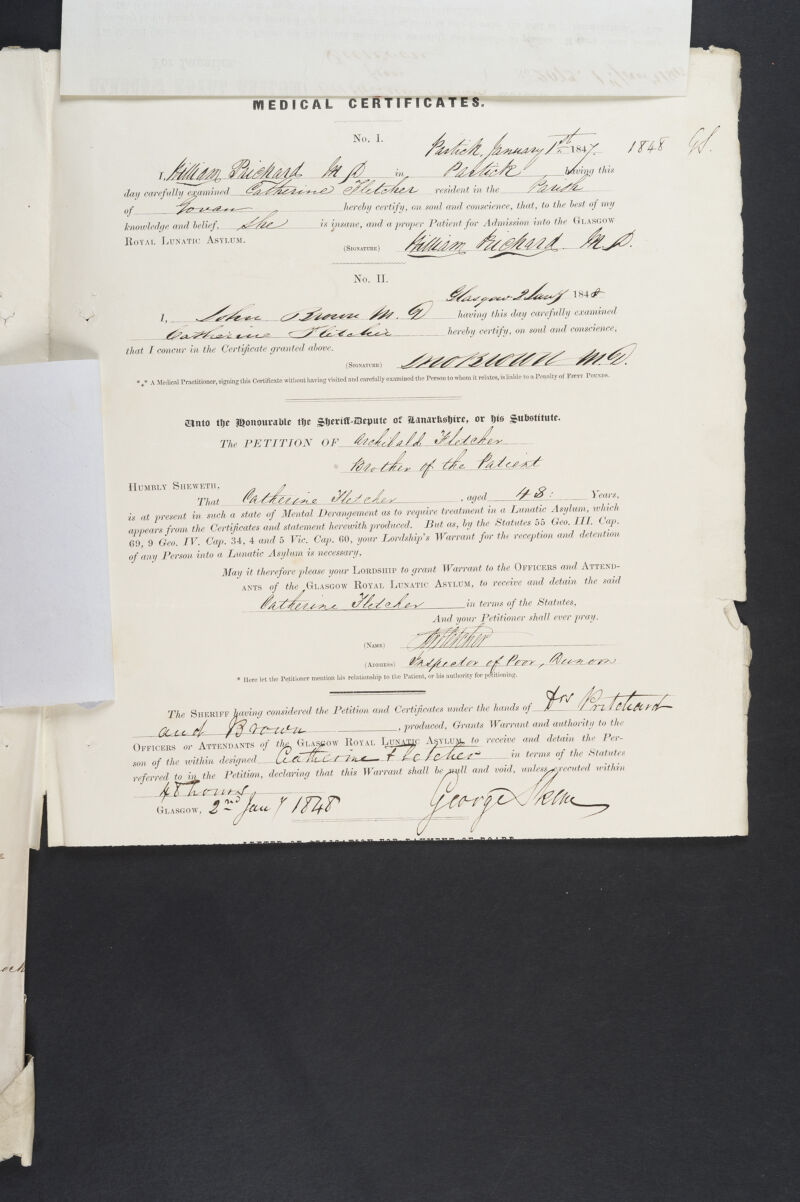 MEDICAL CERTIFICATES.
No. I.
Partick, January 1st 1847. 1848 GS.
I, William Richard M D in Partick having this
day carefully examined Catherine Fletcher resident in the
of Govan hereby certify, on soul and conscience, that, to the best of my
knowledge and belief, She is insane, and a proper Patient for Admission into the GLASGOW
ROYAL LUNATIC ASYLUM.
(SIGNATURE) William Richard. M. D.
No. II.
Glasgow 2 Jany 1848
I, John Brown M. D having this day carefully examined
Catherine Fletcher hereby certify, on soul and conscience,
that I concur in the Certificate granted above.
(SIGNATURE) Jno Brown M.D.
*** A Medical Practitioner, signing this Certificate without having visited and carefully examined the Person to whom it relates, is liable to a Penalty of FIFTY POUNDS.
Unto the Honourable the Sheriff-Depute of Lanarkshire, or his Substitute.
The PETITION OF Archibald Fletcher
* Brother of the Patient
HUMBLY SHEWETH,
That Catherine Fletcher, aged 43: Years,
is at present in such a state of Mental Derangement as to require treatment in a Lunatic Asylum, which
appears from the Certificates and statement herewith produced. But as, by the Statutes 55 Geo. III. Cap.
69, 9 Geo. IV. Cap. 34, 4 and 5 Vic. Cap. 60, your Lordship's Warrant for the reception and detention
of any Person into a Lunatic Asylum is necessary,
May it therefore please your LORDSHIP to grant Warrant to the OFFICERS and ATTEND-
ANTS of the GLASGOW ROYAL LUNATIC ASYLUM, to receive and detain the said
Catherine Fletcher in terms of the Statutes,
And your Petitioner shall ever pray.
(NAME) A Fletcher
(ADDRESS) Inspector of Poor, Dunoon
* Here let the Petitioner mention his relationship to the Patient, or his authority for petitioning.
The SHERIFF having considered the Petition and Certificates under the hands of Drs Pritchard
and Brown, produced, Grants Warrant and authority to the
OFFICERS or ATTENDANTS of the GLASGOW ROYAL LUNATIC ASYLUM, to receive and detain the Per-
son of the within designed Catherine Fletcher in terms of the Statutes
referred to in the Petition, declaring that this Warrant shall be null and void, unless executed within
48 hours
GLASGOW, 2nd Jany 1848 George Skene